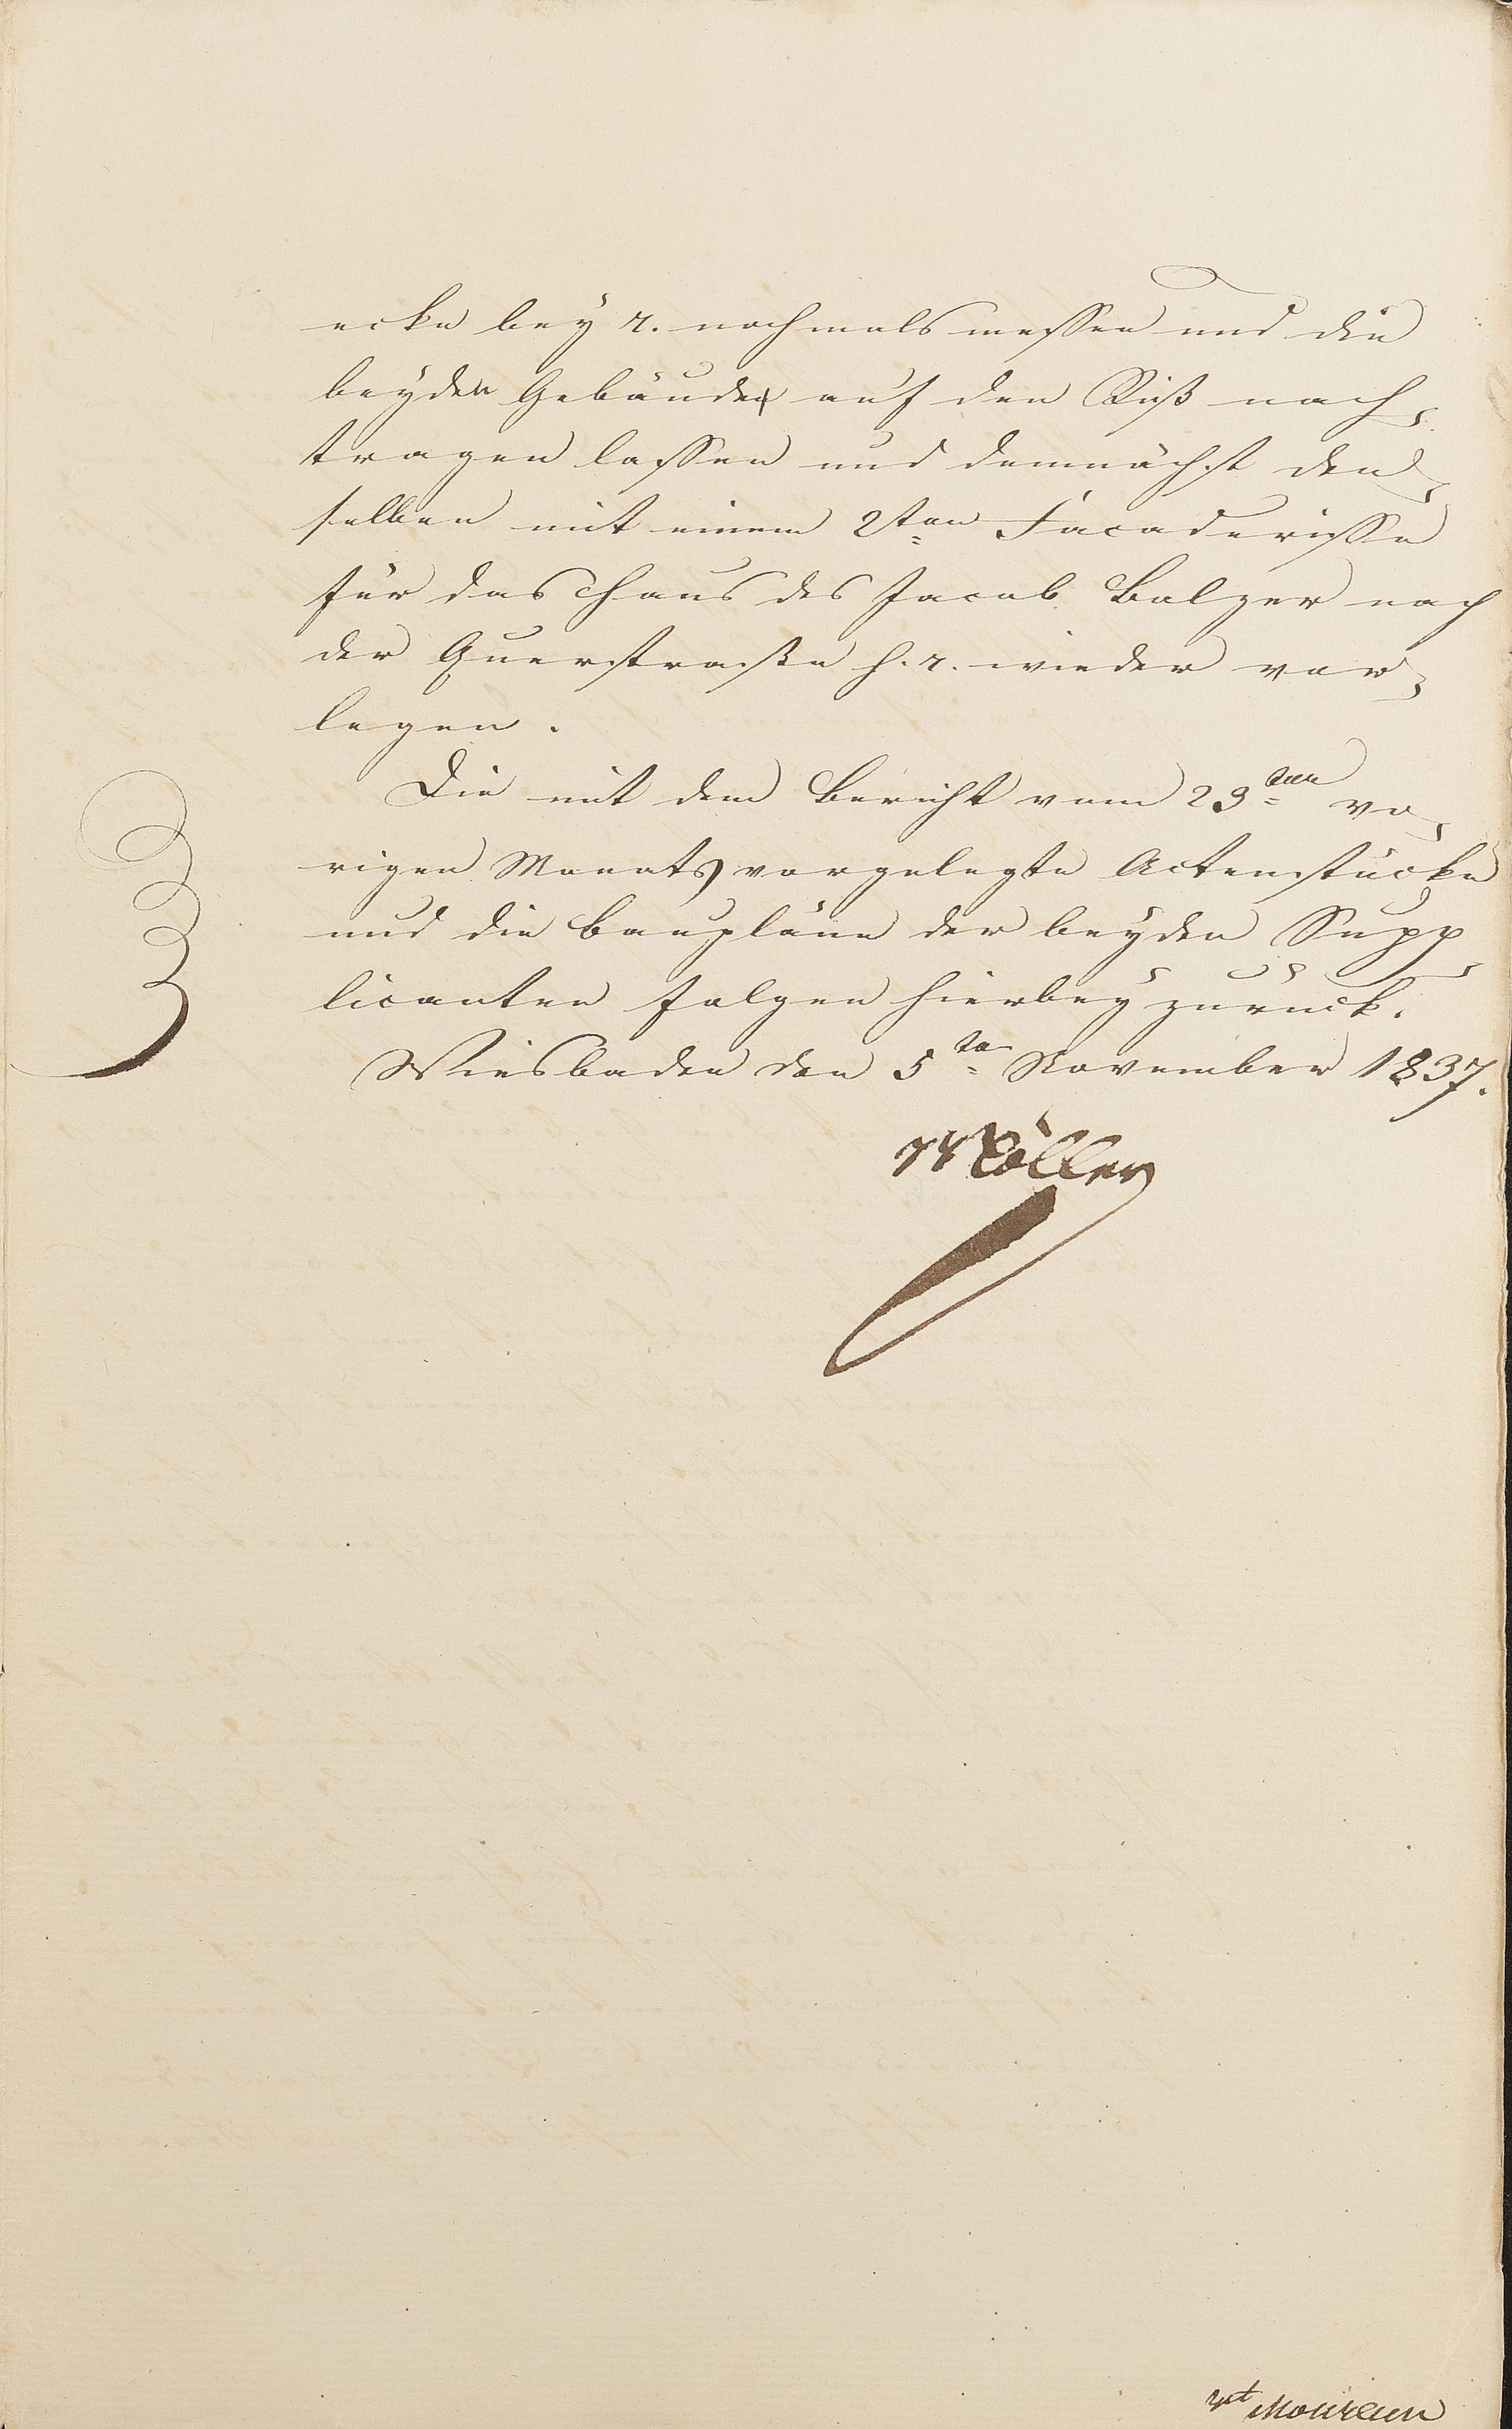 ecke bey r. nochmals messen und die
beyden Gebäude auf den Riß nach-
tragen lassen und demnächst den-
selben mit einem 2ten Facaderisse
für das Haus des Jacob Balzer nach
der Querstraße h. r. wieder vor-
legen.
Die mit dem Bericht vom 23ten vo-
rigen Monats vorgelegte Actenstücke
und die Baupläne der beyden Supp-
licanten folgen hierbey zurück.
Wiesbaden den 5ten November 1837.
Möller
vdt